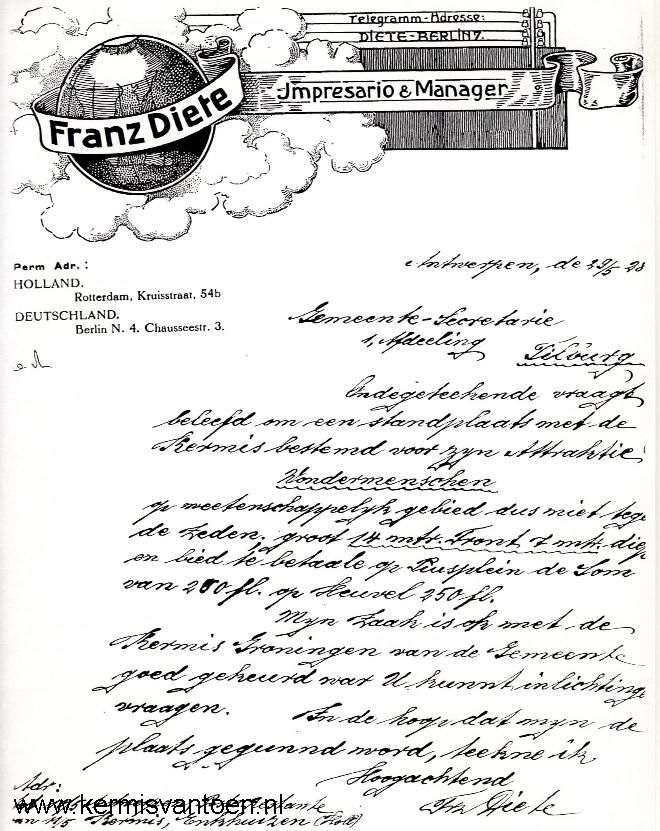 Telegramm-Adresse:
DIETE-BERLIN7.
Franz Diete
Impresario & Manager
Perm Adr.:
HOLLAND.
Rotterdam, Kruisstraat, 54b
DEUTSCHLAND.
Berlin N. 4. Chausseestr. 3.
Antwerpen, de 29/5 28
Gemeente-Secretarie
1, Afdeeling Tilburg
Ondegeteekende vraagt
beleefd om een standplaats met de
Kermis bestemd voor zyn Attraktie
Wondermenschen
op weetenschappelyk gebied dus niet tege
de zeden. groot 14 mtr. Front 7 mtr. diep
en bied te betaale op Piusplein de Som
van 200 fl. op Heuvel 250 fl.
Myn Zaak is ok met de
Kermis Groningen van de Gemeente
goed gekeurd war U kunnt inlichtinge
vraagen. In de hoop dat myn de
plaats gegunnd word, teekne ik
Hoogachtend
Frz Diete
Adr:
www.kermisvantoen.nl
Kermis, Enkhuizen (Holl)